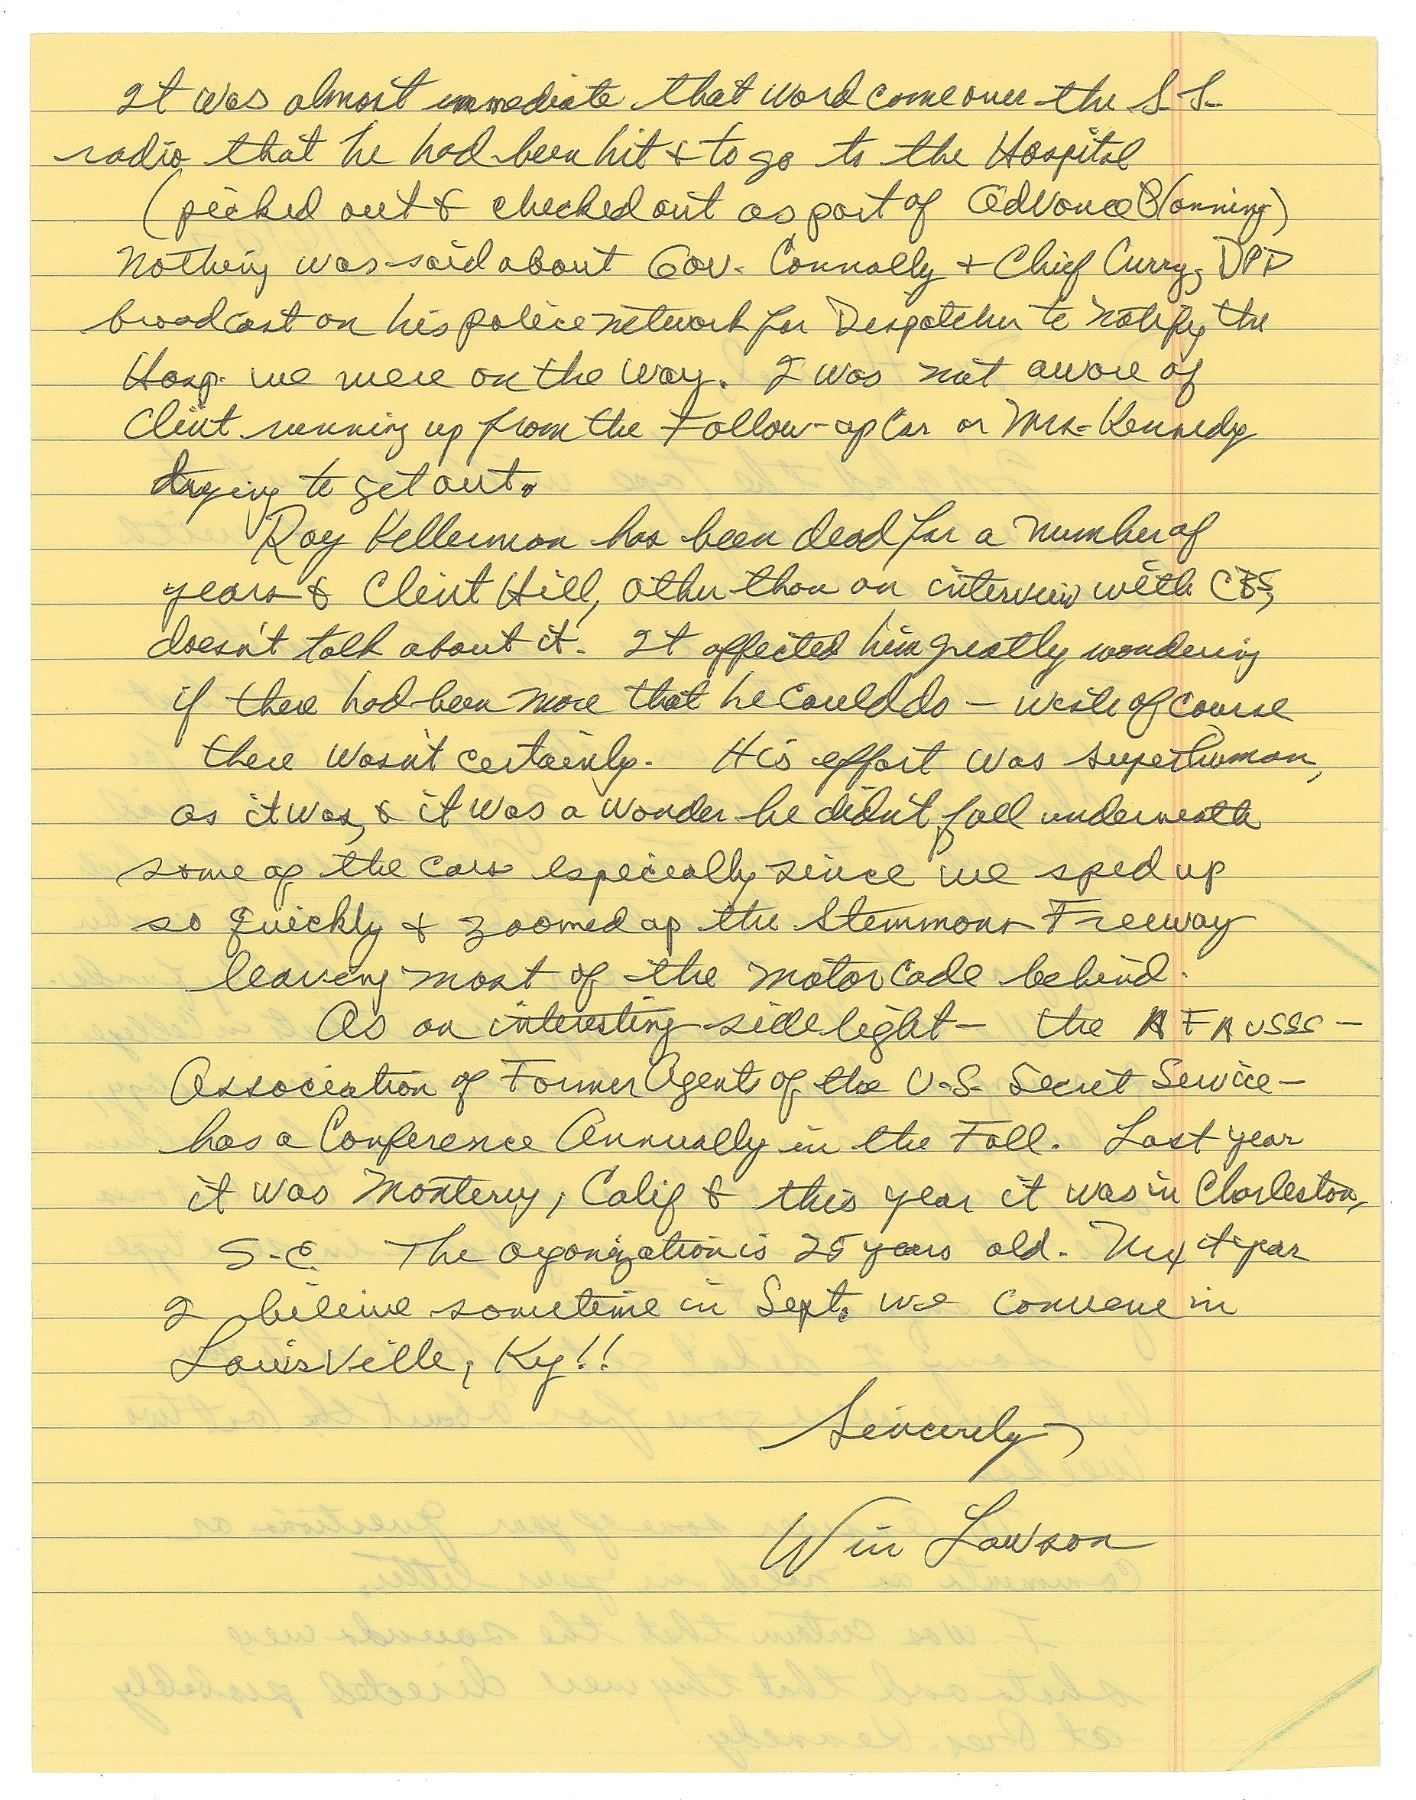 It was almost immediate that word come over the S.S.
radio that he had been hit & to go to the Hospital
(picked out & checked out as part of Advance Planning)
Nothing was said about Gov. Connally & Chief Curry, DPD
broadcast on his police network for Dispatcher to notify the
Hosp. we were on the way. I was not aware of
Clint running up from the Follow-up Car or Mrs. Kennedy
trying to get out.
Roy Kellerman has been dead for a number of
years & Clint Hill, other than an interview with CBS,
doesn't talk about it. It affected him greatly wondering
if there had been more that he could do - of course
there wasn't certainly. His effort was superhuman,
as it was, & it was a wonder he didn't fall underneath
some of the cars especially since we sped up
so quickly & zoomed up the Stemmons Freeway
leaving most of the motorcade behind.
As an interesting sidelight - the AFAUSSS -
Association of Former Agents of the U.S. Secret Service -
has a Conference Annually in the Fall. Last year
it was Monterey, Calif & this year it was in Charleston,
S.C. The organization is 25 years old. Next year
I beleive sometime in Sept. we convene in
Louisville, Ky!!
Sincerely,
Win Lawson